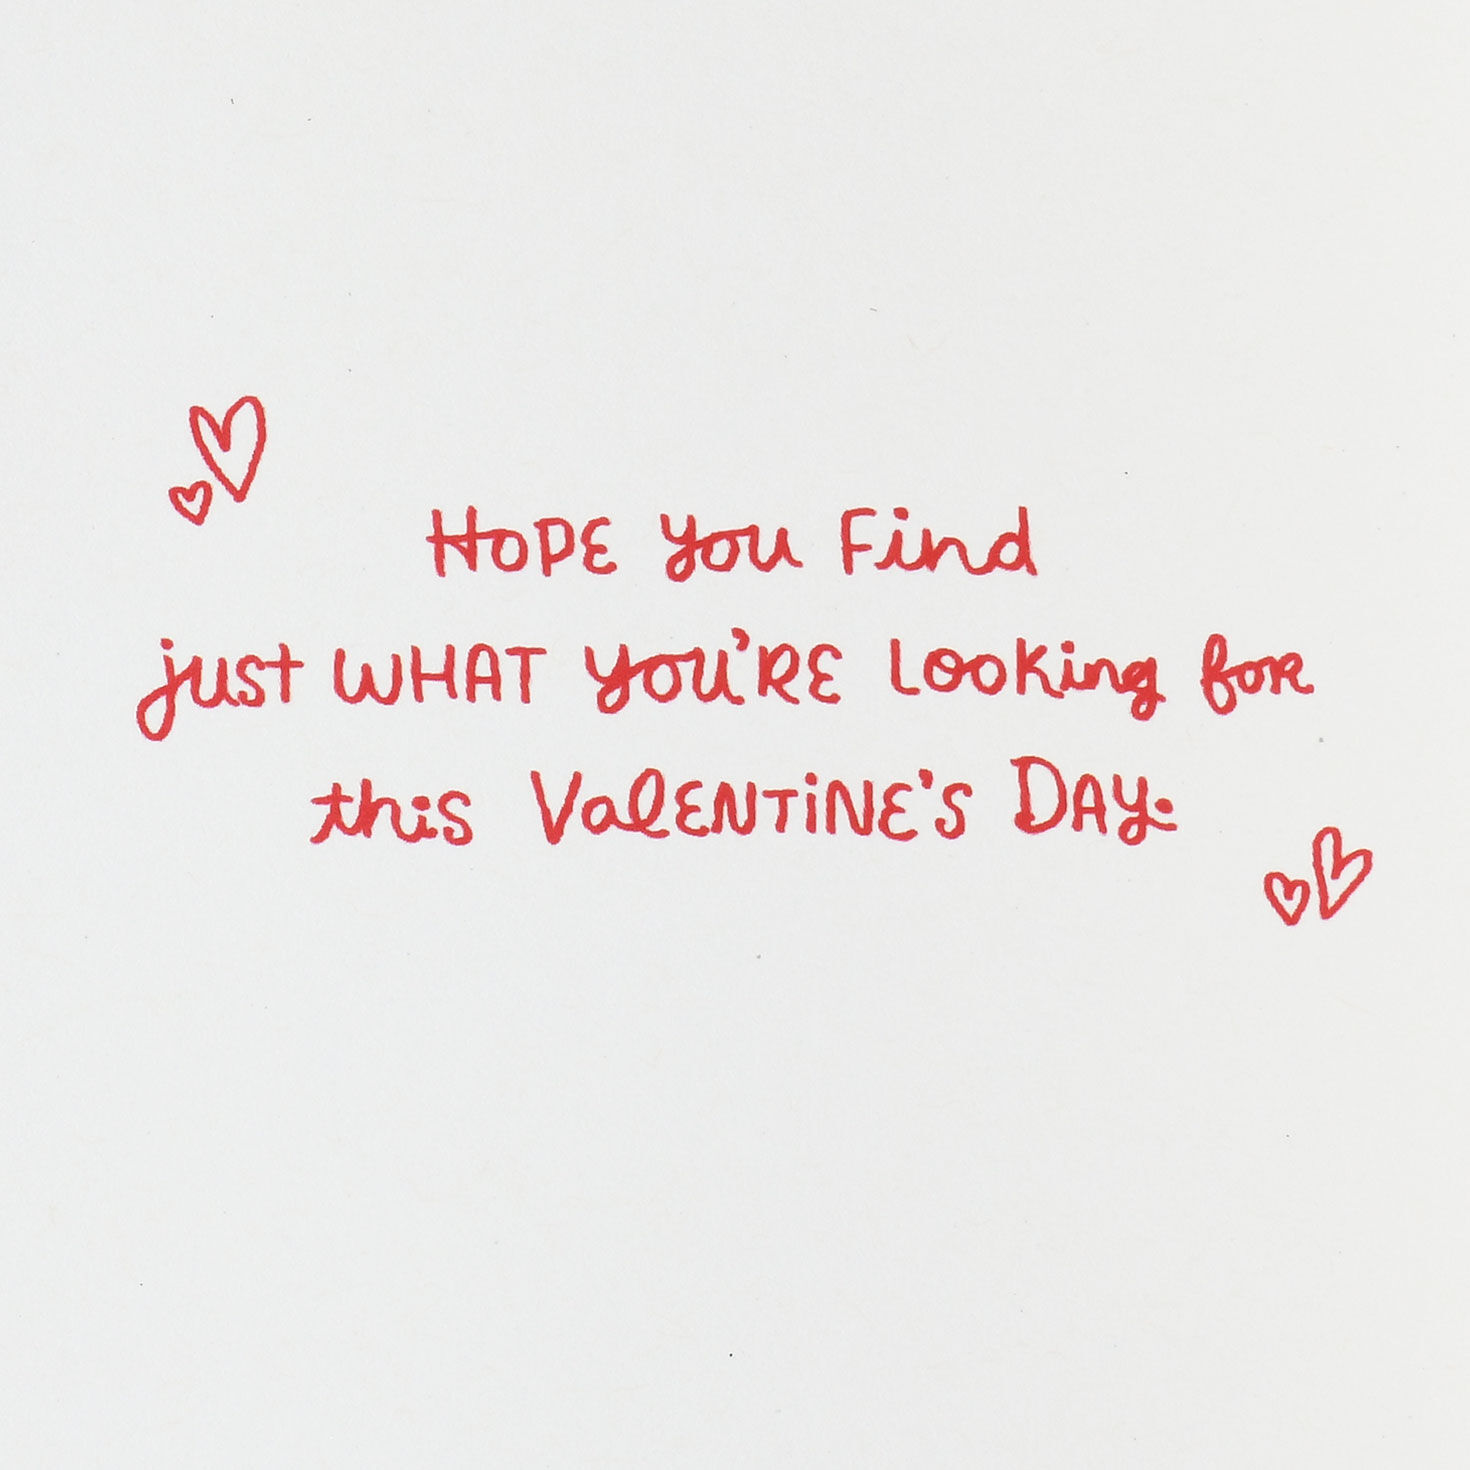 HOPE you Find
just WHAT YOU'RE Looking foR
this ValENTiNE'S DAY.